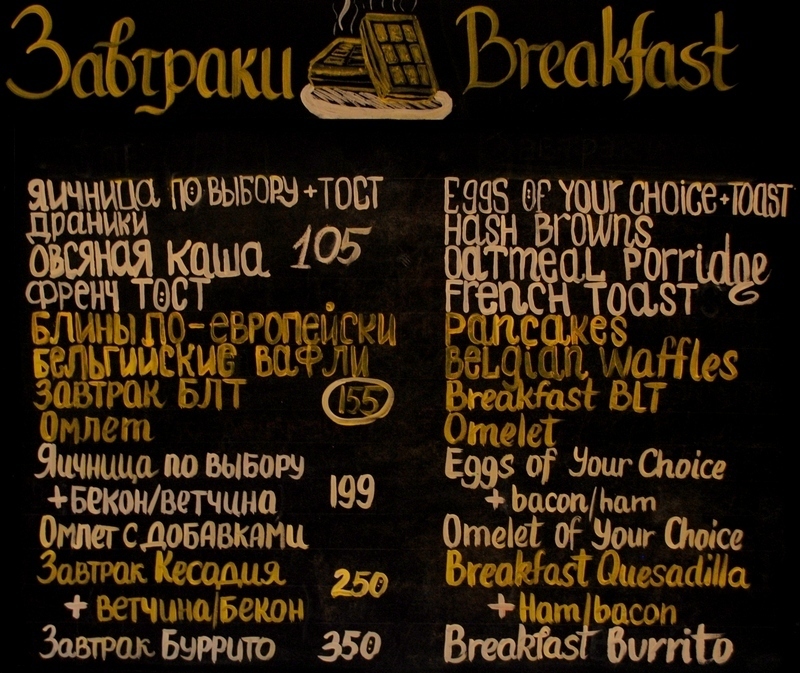 Завтраки Breakfast
яичница по выбору + тост
драники
овсяная каша 105
френч тост
блины по-европейски
бельгийские вафли
Завтрак БЛТ 155
Омлет
Яичница по выбору
+бекон/ветчина 199
Омлет с добавками
Завтрак Кесадия 250
+ ветчина/бекон
Завтрак Буррито 350
Eggs of your choice + toast
Hash Browns
Oatmeal Porridge
French Toast
Pancakes
Belgian Waffles
Breakfast BLT
Omelet
Eggs of Your Choice
+ bacon/ham
Omelet of Your Choice
Breakfast Quesadilla
+ Ham/bacon
Breakfast Burrito